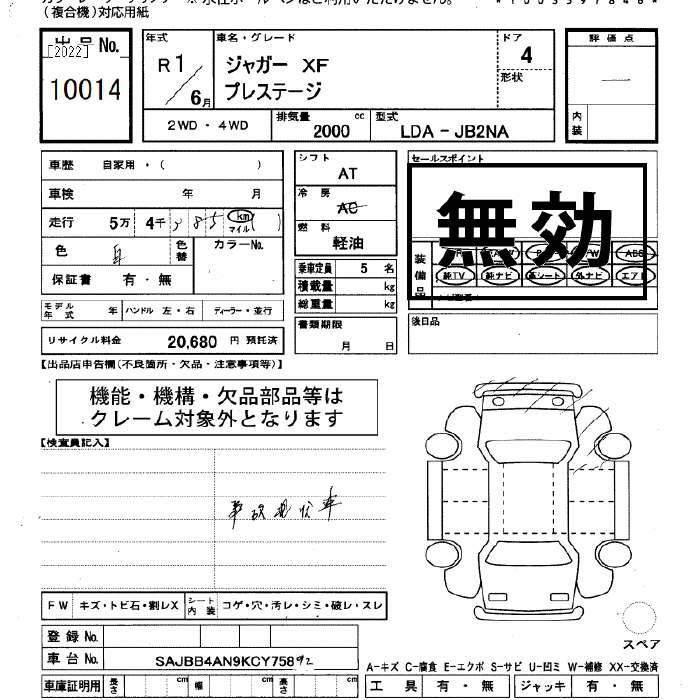 (複合機)対応用紙
出品 No.
[2022]
10014
年式
R1/6月
車名・グレード
ジャガー XF
プレステージ
ドア
4
形状
評価点
内装
2WD・4WD
排気量 2000 cc
型式 LDA-JB2NA
車歴 自家用・( )
車検 年 月
走行 5万 4千 385 km マイル ( )
色
色替
カラーNo.
保証書 有・無
モデル年式 年 ハンドル 左・右 ディーラー・並行
リサイクル料金 20,680 円 預託済
シフト
AT
冷房
AC
燃料
軽油
乗車定員 5 名
積載量 kg
総重量 kg
書類期限
月 日
セールスポイント
無効
装備品
純TV 純ナビ 革シート 外ナビ エアB
ABS
後日品
【出品店申告欄(不良箇所・欠品・注意事項等)】
機能・機構・欠品部品等は
クレーム対象外となります
【検査員記入】
事故現状車
FW キズ・トビ石・割レX
シート内装 コゲ・穴・汚レ・シミ・破レ・スレ
登録 No.
車台 No. SAJBB4AN9KCY75892
車庫証明用 長さ cm 幅 cm 高さ cm
スペア
A-キズ C-腐食 E-エクボ S-サビ U-凹ミ W-補修 XX-交換済
工具 有・無 ジャッキ 有・無